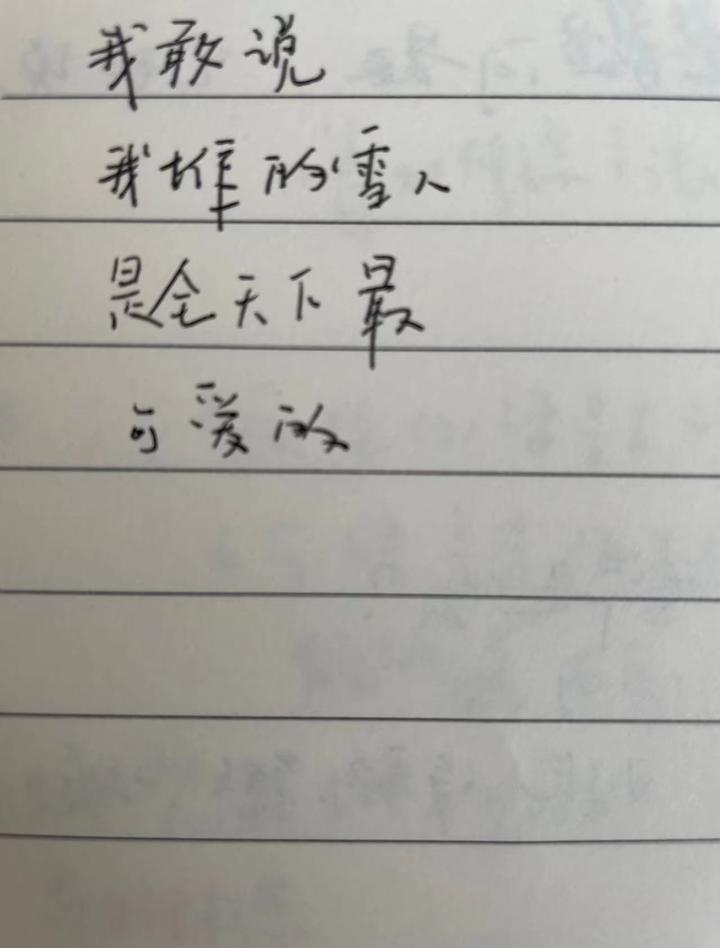 我敢说
我堆的雪人
是全天下最
可爱的